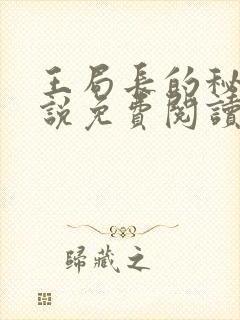 王局長的秘
說免費閱讀
歸藏之